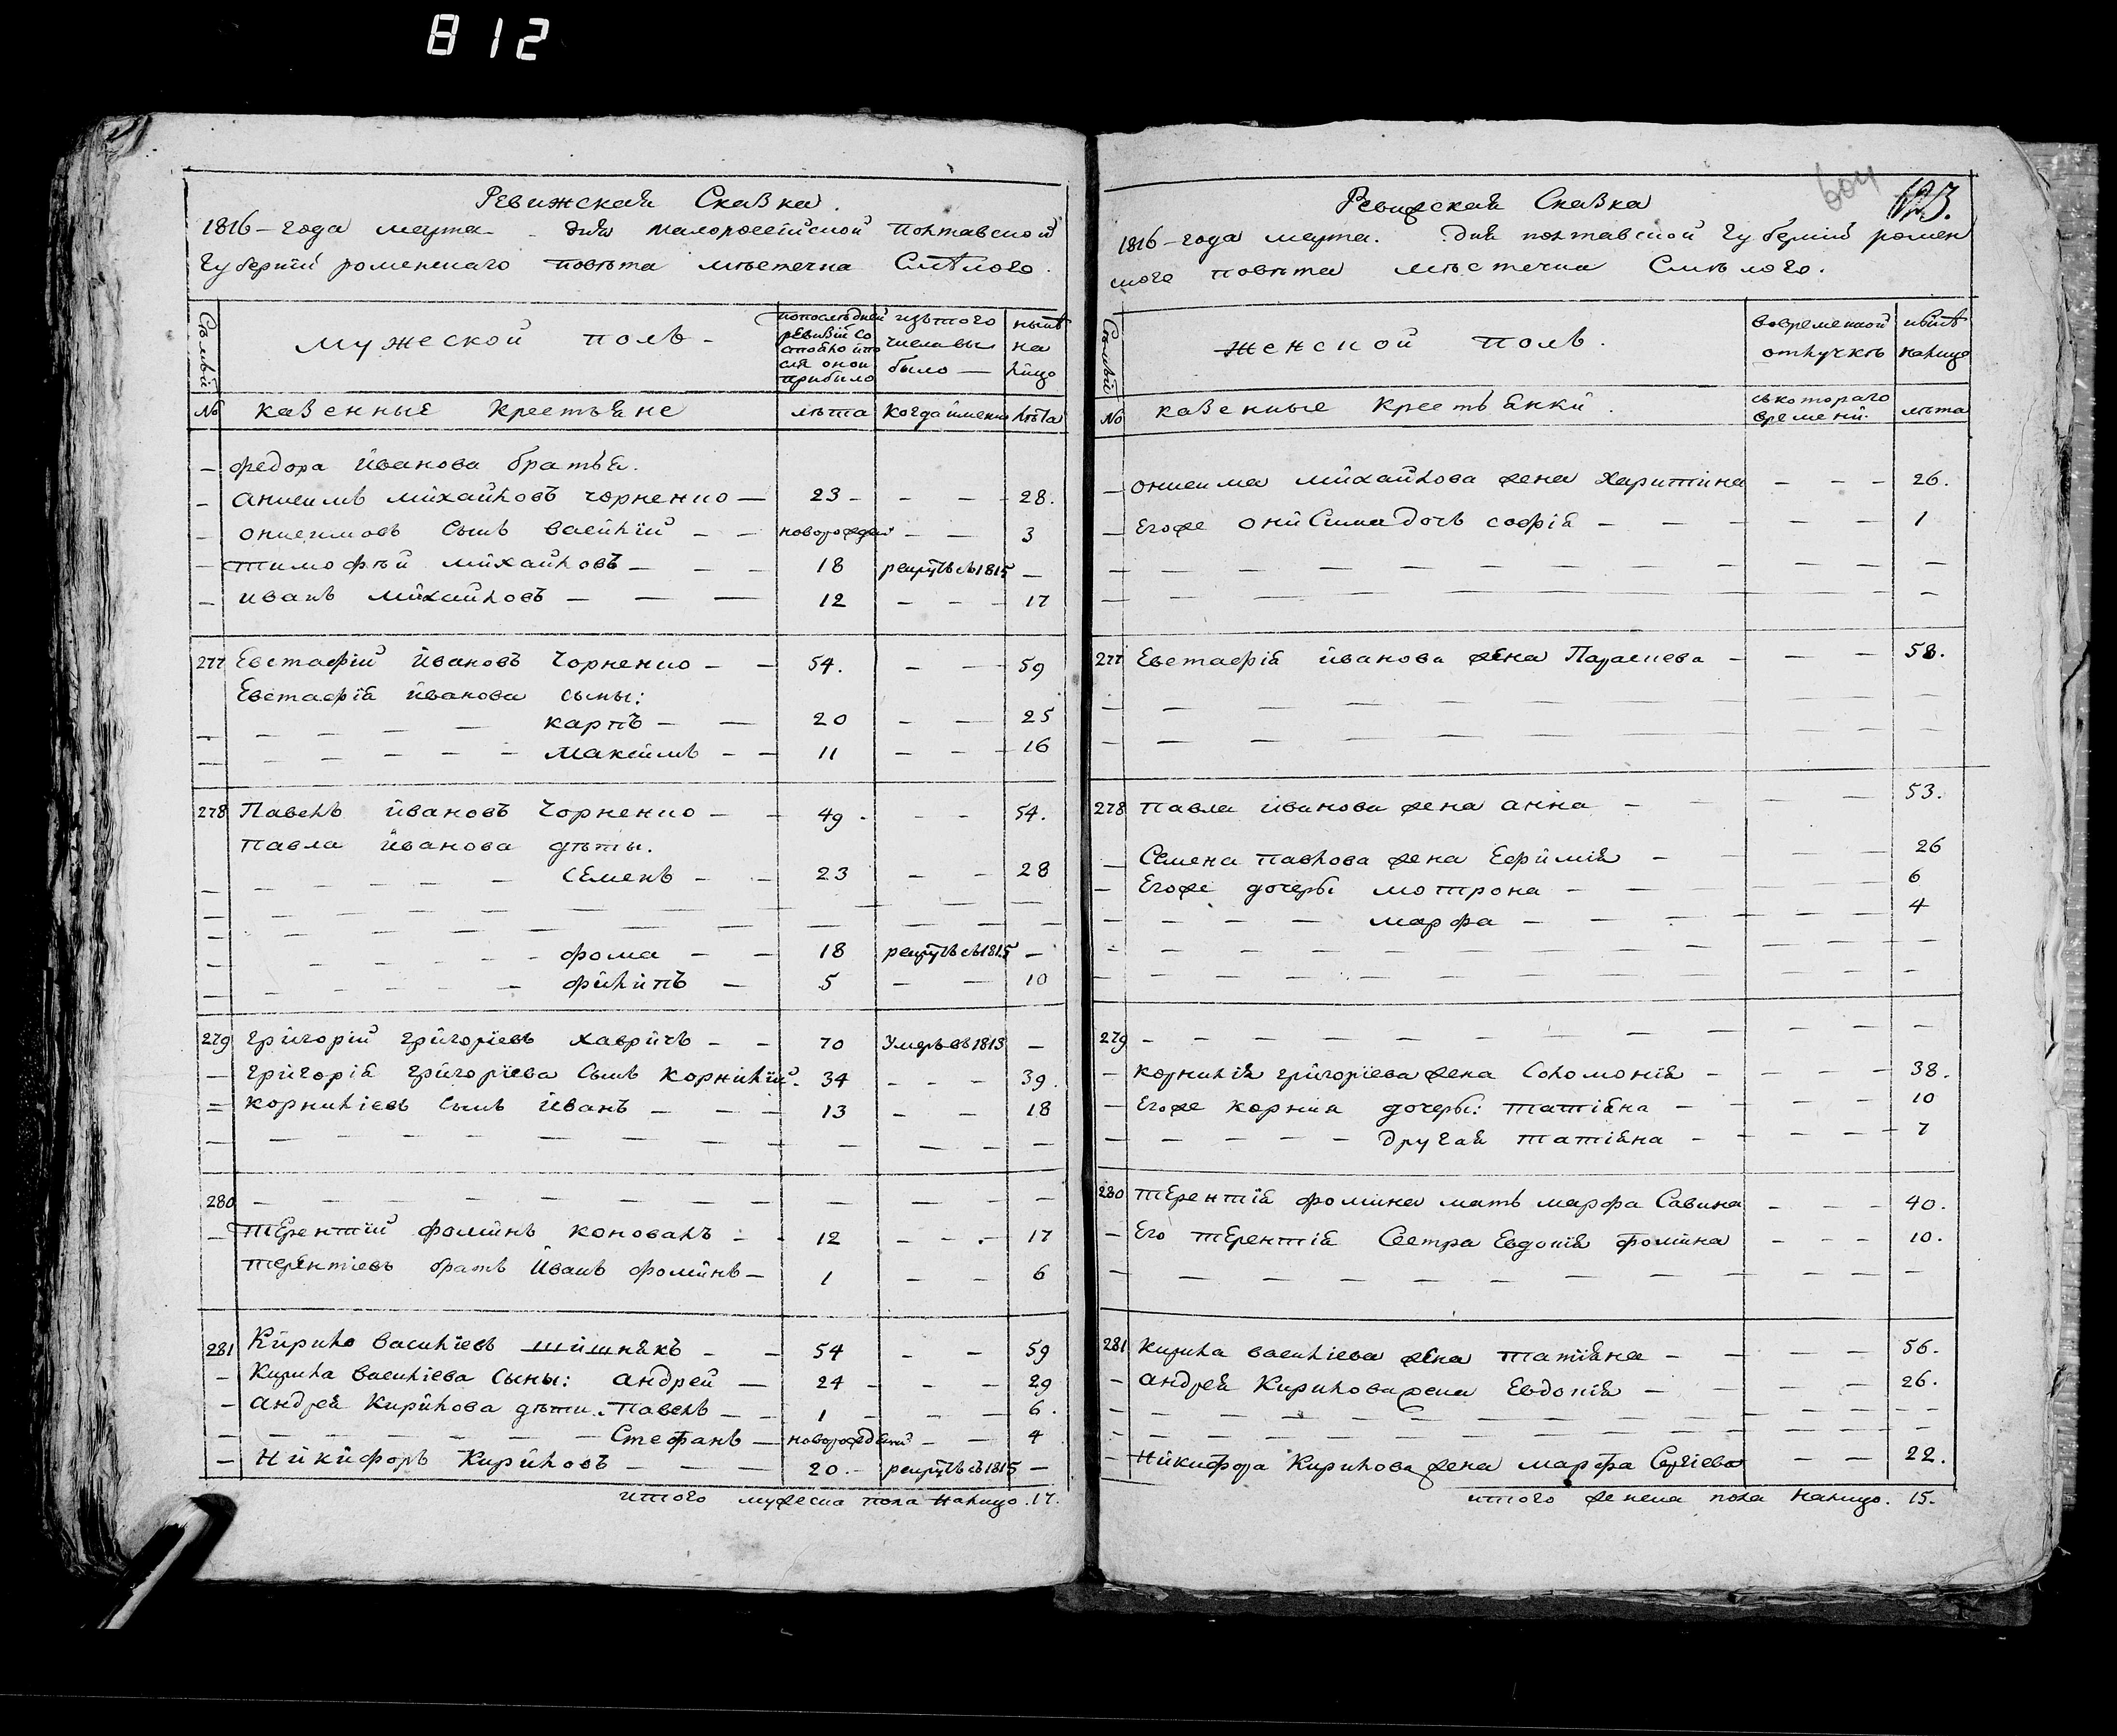 812
Ревижская Сказка.
1816 – года марта – дня малороссійской Полтавской
Губерніи роменскаго повѣта мѣстечка Смѣлого.
Сѣмьи
мужеской полъ –
попослѣдней ревизіи состояло ипослѣ оной прибыло
изътого числа выбыло –
нынѣ на лицо
№ казенные Крестьяне лѣта когда имено лѣта
– федора иванова братья.
– анисимъ михайловъ чорненко – 23 – – – 28.
– онисимовъ сынъ василій – – новорожден – – 3
– тимофѣй михайловъ – – – 18 рекрутъ въ 1815 –
– иванъ михайловъ – – – 12 – – – 17
277 Евстафій ивановъ Чорненко – – 54. – – 59
Евстафія иванова сыны:
– – – – – карпъ – – 20 – – 25
– – – – – – максимъ – – 11 – – 16
278 Павелъ ивановъ Чорненко – – 49 – – – 54.
Павла иванова дѣти.
– – – – – – семенъ – – 23 – – 28
– – – – – – – – –
– – – – – – – – –
– – – – – – фома – – 18 рекрутъ въ 1815 –
– – – – – – филипъ – 5 – – 10
279 григорій григоріевъ хавричъ – – 70 Умеръ въ 1813 –
– григорія григоріева сынъ корнилій. 34 – – – 39.
= корниліевъ сынъ иванъ – – – 13 – – 18
– – – – – – – – –
280 – – – – – – – – –
– терентій фоминъ коновалъ – – 12 – – – 17
терентіевъ братъ иванъ фоминъ – 1 – – 6
281 Кирило василіевъ шишнякъ – – 54 – – 59
– Кирила василіева сыны: андрей – 24 – – – 29
– андрея Кирилова дѣти. павелъ – – 1 – – – 6.
– – – – – – Стефанъ – новорожденій – – 4
– Никифоръ Кириловъ – – – 20. – рекрутъ въ 1815 –
итого мужеска пола налицо. 17.
Ревижская Сказка
604
123.
1816 – года марта. дня полтавской губерніи ромен
ского повѣта мѣстечка Смѣлого.
Сѣмьи
женской полъ.
вовременной отлучкѣ
нынѣ налицо
№ казенные крестьянки.
съкотораго времени.
лѣта
– онисима михайлова жена Харитина – – – 26.
– Егоже онисима дочь софія – – – – – 1
– – – – – – – – –
– – – – – – – – –
277 Евстафія иванова жена Параскева – – – 58.
– – – – – – – – –
– – – – – – – – –
278 павла иванова жена анна – – – – 53.
– Семена павлова жена Ефимія – – – – 26
– Егоже дочери мотрона – – – – 6
– – – – – марфа – – – – – – 4
– – – – – – – – –
– – – – – – – – –
279 – – – – – – – – –
– корнилія григоріева жена Соломонія – – – – 38.
– Егоже корнила дочери: татіяна – – – – – 10
– – – – – другая татіяна – – – – – 7
280 терентія фомина мать марфа Савина – – – 40.
– Его терентія сестра Евдокія фомина – – – 10.
– – – – – – – – –
281 Кирила василіева жена татіяна – – – – 56.
– андрея Кирилова жена Евдокія – – – – 26.
– – – – – – – – –
– – – – – – – – –
– Никифора Кирилова жена марфа Сергіева – – 22.
итого женска пола налицо. 15.